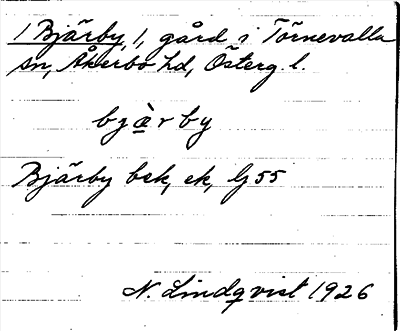 1 Bjärby, 1, gård i Törnevalla
sn, Åkerbo hd, Österg. l.
bjà̱rby
Bjärby bsk, ek, Gj 55
N. Lindqvist 1926